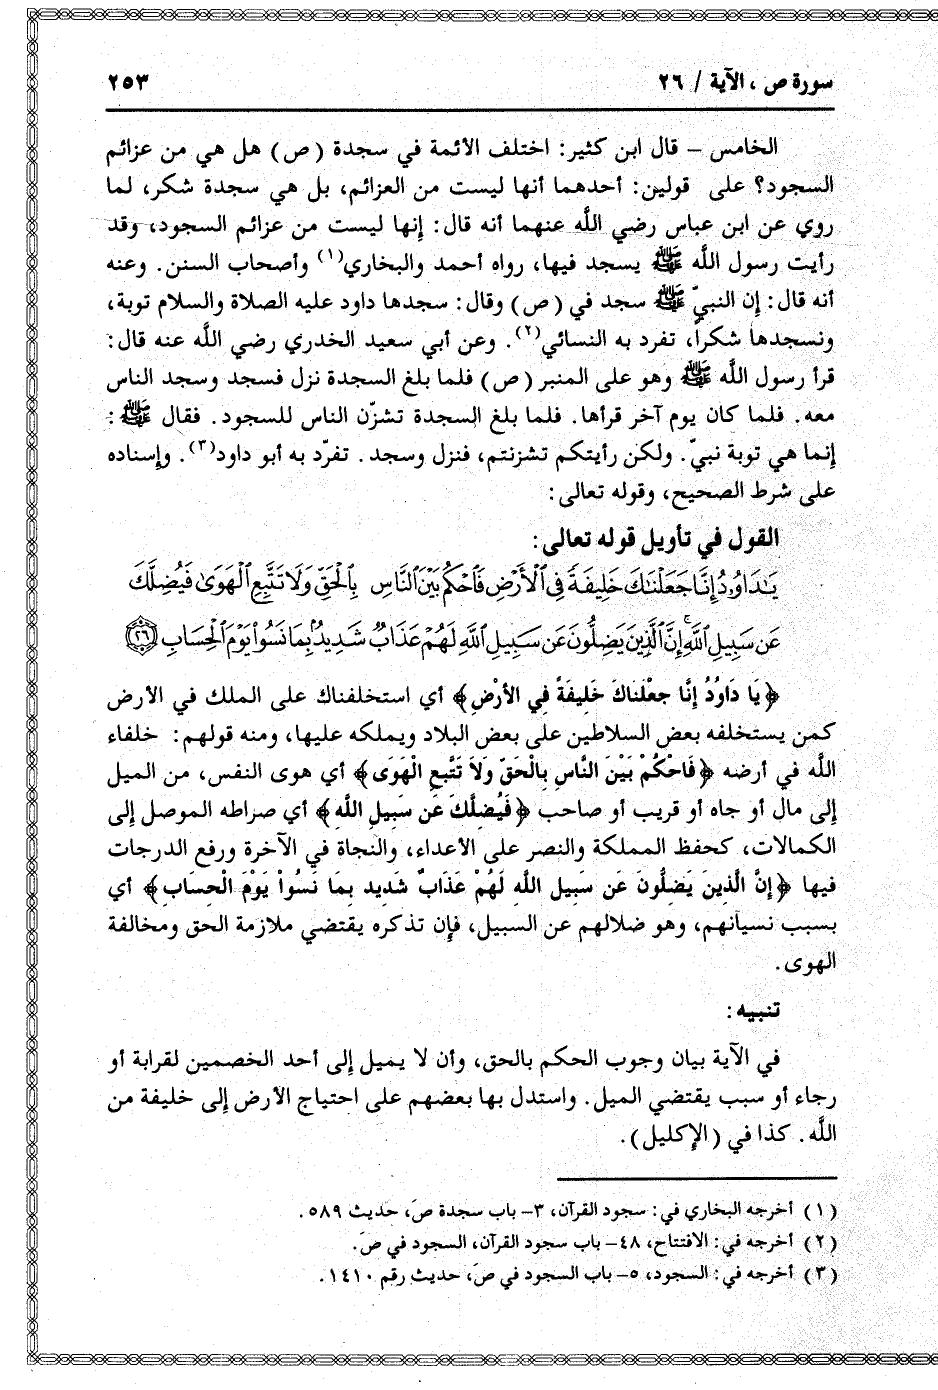 سورة ص ، الآية / ٢٦
٢٥٣
الخامس – قال ابن كثير: اختلف الأئمة في سجدة (ص) هل هي من عزائم
السجود؟ على قولين: أحدهما أنها ليست من العزائم، بل هي سجدة شكر، لما
روي عن ابن عباس رضي اللَّه عنهما أنه قال: إنها ليست من عزائم السجود، وقد
رأيت رسول اللَّه ﷺ يسجد فيها، رواه أحمد والبخاري(١) وأصحاب السنن. وعنه
أنه قال: إن النبيّ ﷺ سجد في (ص) وقال: سجدها داود عليه الصلاة والسلام توبة،
ونسجدها شكراً، تفرد به النسائي(٢). وعن أبي سعيد الخدري رضي اللَّه عنه قال:
قرأ رسول اللَّه ﷺ وهو على المنبر (ص) فلما بلغ السجدة نزل فسجد وسجد الناس
معه. فلما كان يوم آخر قرأها. فلما بلغ السجدة تشزّن الناس للسجود. فقال ﷺ:
إنما هي توبة نبيّ. ولكن رأيتكم تشزنتم، فنزل وسجد. تفرّد به أبو داود(٣). وإسناده
على شرط الصحيح، وقوله تعالى:
القول في تأويل قوله تعالى:
يَٰدَاوُۥدُ إِنَّا جَعَلْنَٰكَ خَلِيفَةً فِي ٱلْأَرْضِ فَٱحْكُم بَيْنَ ٱلنَّاسِ بِٱلْحَقِّ وَلَا تَتَّبِعِ ٱلْهَوَىٰ فَيُضِلَّكَ
عَن سَبِيلِ ٱللَّهِ ۚ إِنَّ ٱلَّذِينَ يَضِلُّونَ عَن سَبِيلِ ٱللَّهِ لَهُمْ عَذَابٌ شَدِيدٌۢ بِمَا نَسُوا۟ يَوْمَ ٱلْحِسَابِ ٢٦
﴿يَا دَاوُدُ إِنَّا جعْلنَاكَ خَلِيفَةً فِي الأرْضِ﴾ أي استخلفناك على الملك في الأرض
كمن يستخلفه بعض السلاطين على بعض البلاد ويملكه عليها، ومنه قولهم: خلفاء
اللَّه في أرضه ﴿فَاحْكُمْ بَيْنَ النَّاسِ بِالْحَقِّ وَلاَ تَتَّبِعِ الْهَوَى﴾ أي هوى النفس، من الميل
إلى مال أو جاه أو قريب أو صاحب ﴿فَيُضلَّكَ عَن سَبِيلِ اللَّه﴾ أي صراطه الموصل إلى
الكمالات، كحفظ المملكة والنصر على الأعداء، والنجاة في الآخرة ورفع الدرجات
فيها ﴿إِنَّ الَّذِينَ يَضلُّونَ عَن سَبِيل اللَّه لَهُمْ عَذَابٌ شَدِيد بِمَا نَسُواْ يَوْمَ الْحِسَاب﴾ أي
بسبب نسيانهم، وهو ضلالهم عن السبيل، فإن تذكره يقتضي ملازمة الحق ومخالفة
الهوى.
تنبيه:
في الآية بيان وجوب الحكم بالحق، وأن لا يميل إلى أحد الخصمين لقرابة أو
رجاء أو سبب يقتضي الميل. واستدل بها بعضهم على احتياج الأرض إلى خليفة من
اللَّه. كذا في (الإكليل).
(١) أخرجه البخاري في: سجود القرآن، ٣- باب سجدة صَ، حديث ٥٨٩.
(٢) أخرجه في: الافتتاح، ٤٨- باب سجود القرآن، السجود في صَ.
(٣) أخرجه في: السجود، ٥- باب السجود في صَ، حديث رقم ١٤١٠.